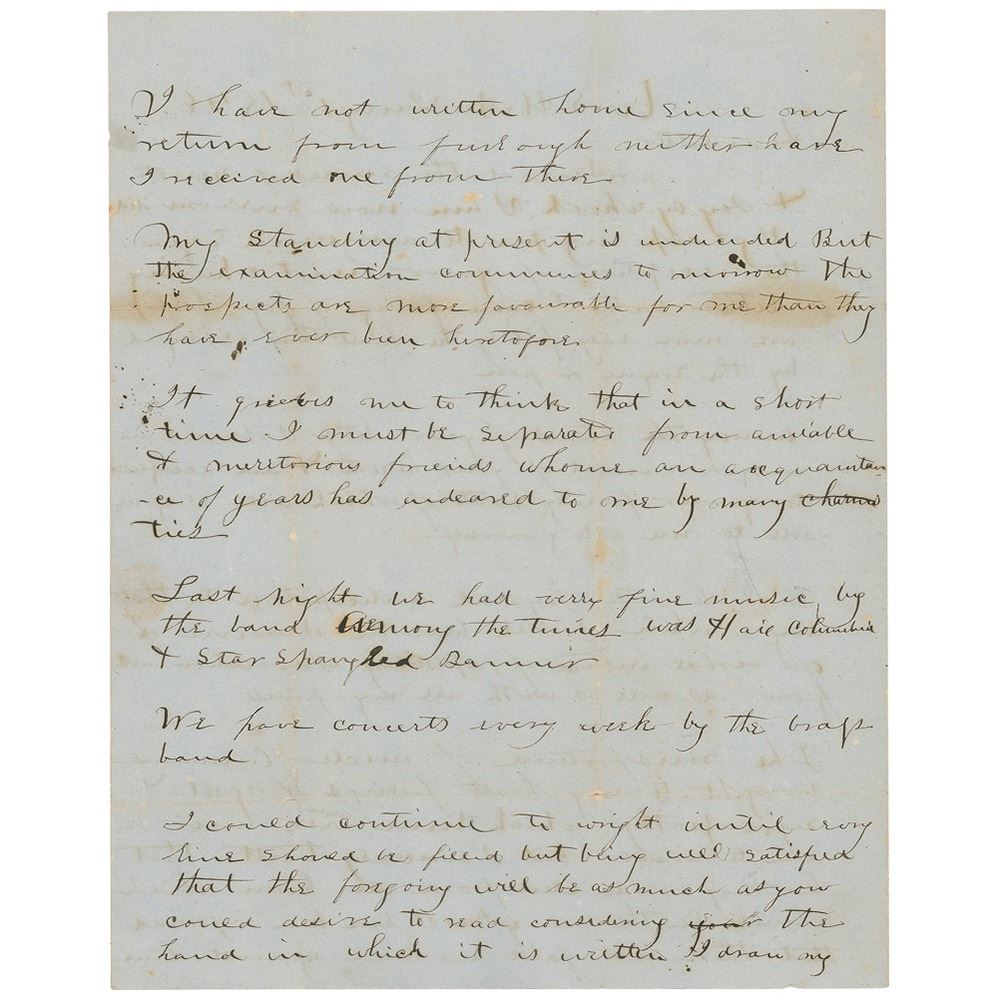 I have not written home since my
return from furlough neither have
I received one from there
My Standing at present is undecided But
the examination commences to morrow the
prospects are more favourable for me than they
have ever been heretofore
It grieves me to think that in a short
time I must be separated from amiable
& meretorious friends whome an acequaintan-
-ce of years has endeared to me by many charms
ties
Last night we had verry fine music by
the band Among the tunes was Hail Columbia
& Star Spangled Banner
We have concerts every week by the brass
band
I could continue to wright until every
line should be filled but being well satisfied
that the foregoing will be as much as you
could desire to read considering your the
hand in which it is written I draw my